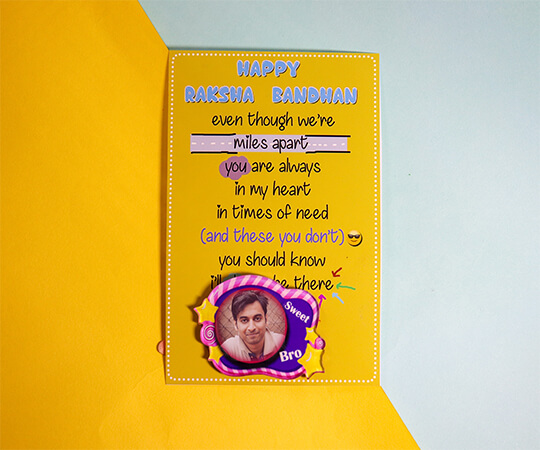 HAPPY
RAKSHA BANDHAN
even though we're
miles apart
you are always
in my heart
in times of need
(and these you don't)
you should know
there
Sweet
Bro